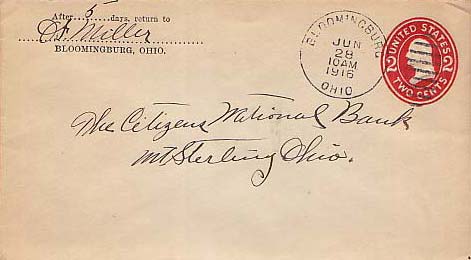 After 5 days, return to
Miller
BLOOMINGBURG, OHIO.
BLOOMINGBURG
JUN
28
10AM
1916
OHIO
UNITED STATES
2 2
TWO CENTS
The Citizens National Bank
Mt Sterling Ohio.